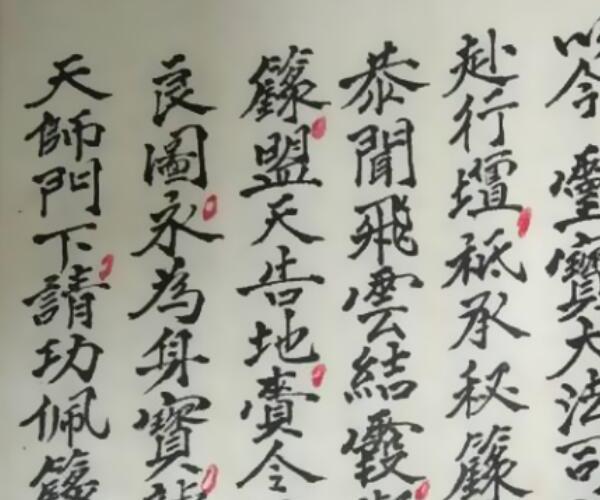 以今 靈寶大法司
赴行壇祗承秘籙
恭聞飛雲結霞
籙盟天告地賫令
良圖永為身寶
天師門下請功佩籙